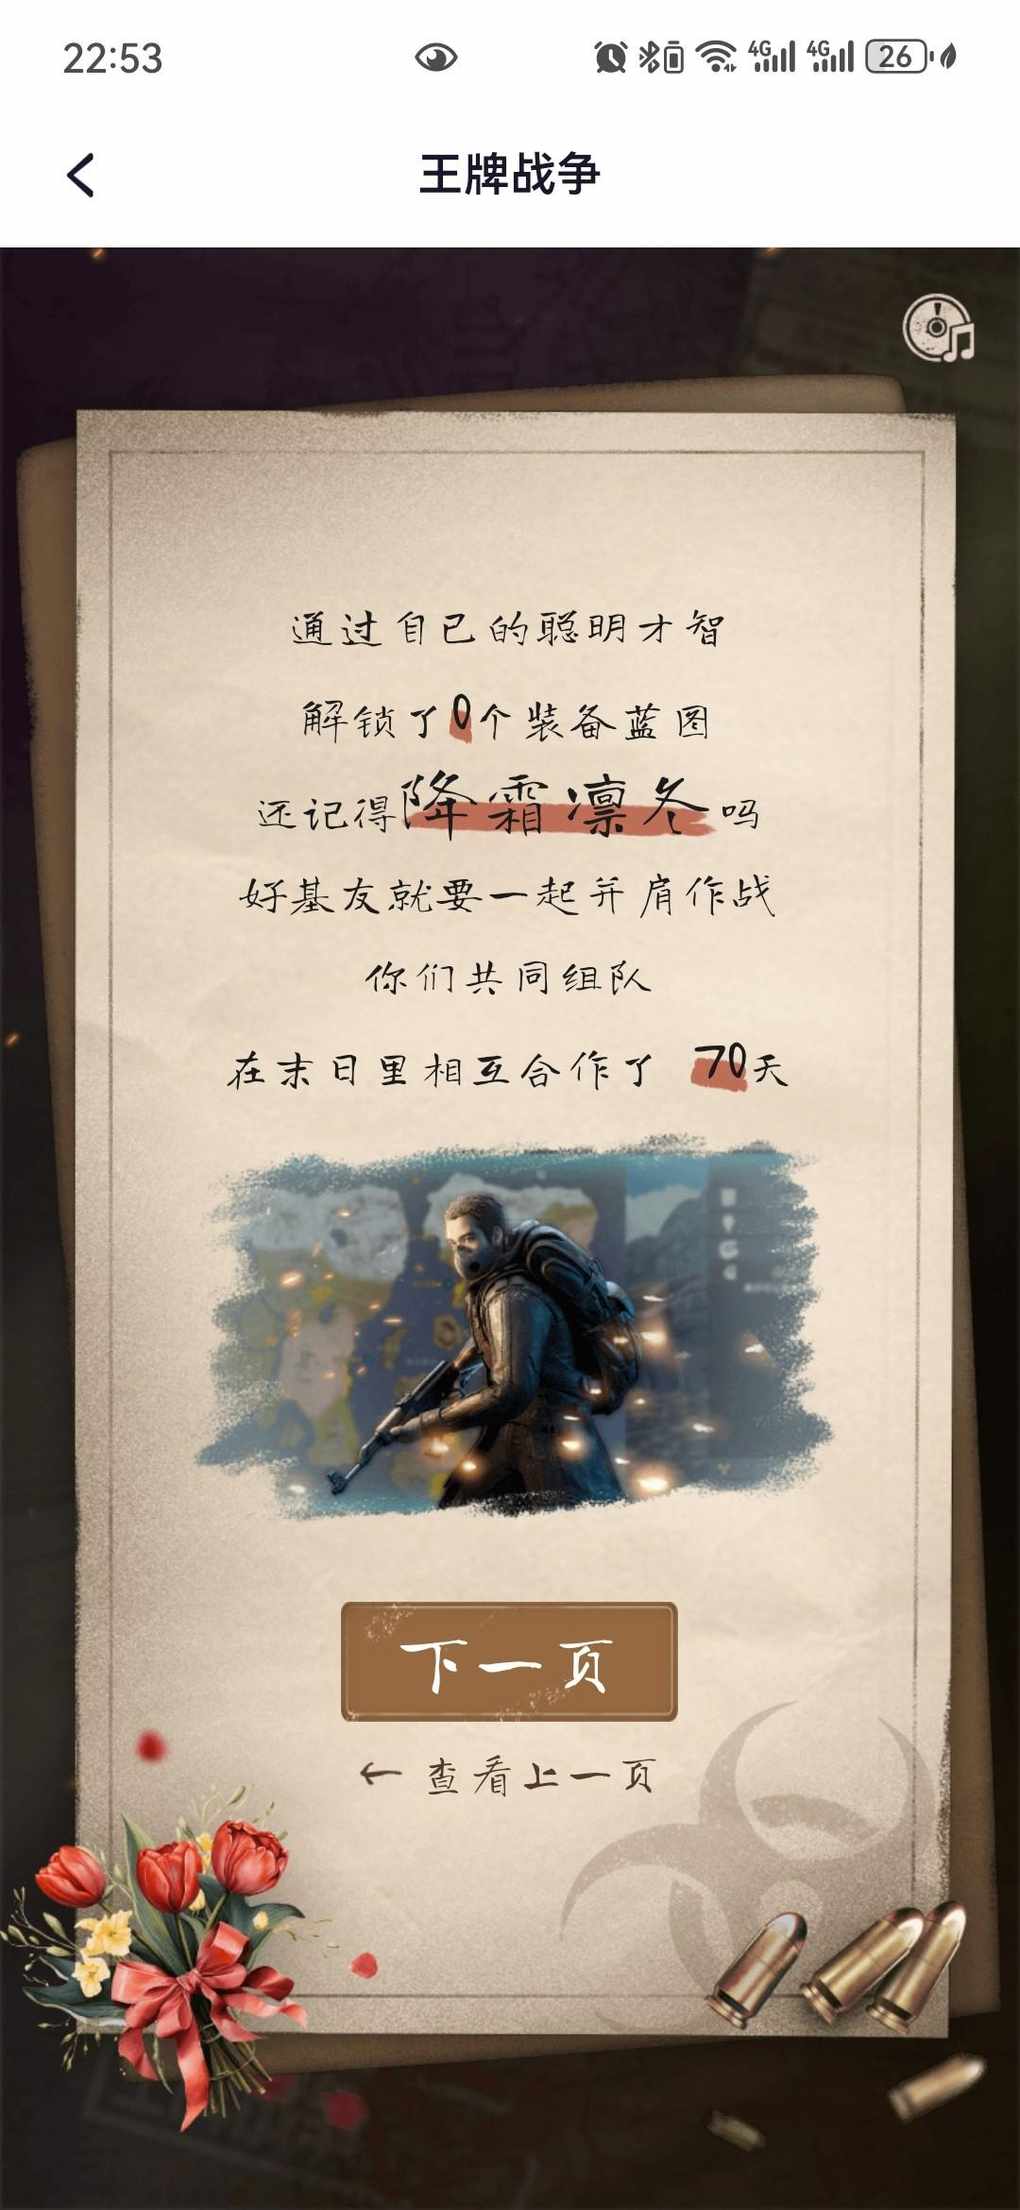 22:53
4G 4G 26
王牌战争
通过自己的聪明才智
解锁了0个装备蓝图
还记得降霜凛冬吗
好基友就要一起并肩作战
你们共同组队
在末日里相互合作了 70天
下一页
← 查看上一页